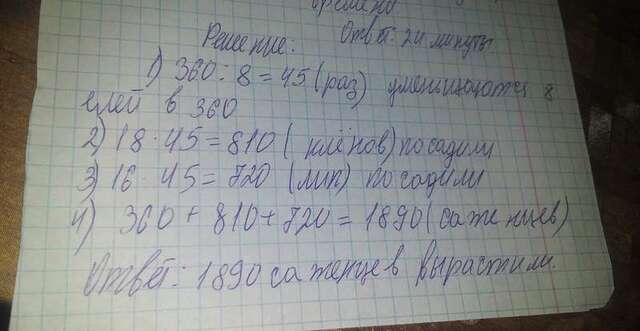 времена
Решение: Ответ: 24 минуты
1) 360 : 8 = 45 (раз) уменьшаютсе 8
елей в 360
2) 18 · 45 = 810 ( клёнов) посадили
3) 16 · 45 = 720 (лип) посадили
4) 360 + 810 + 720 = 1890 (саженцев)
Ответ: 1890 саженцев вырастили.